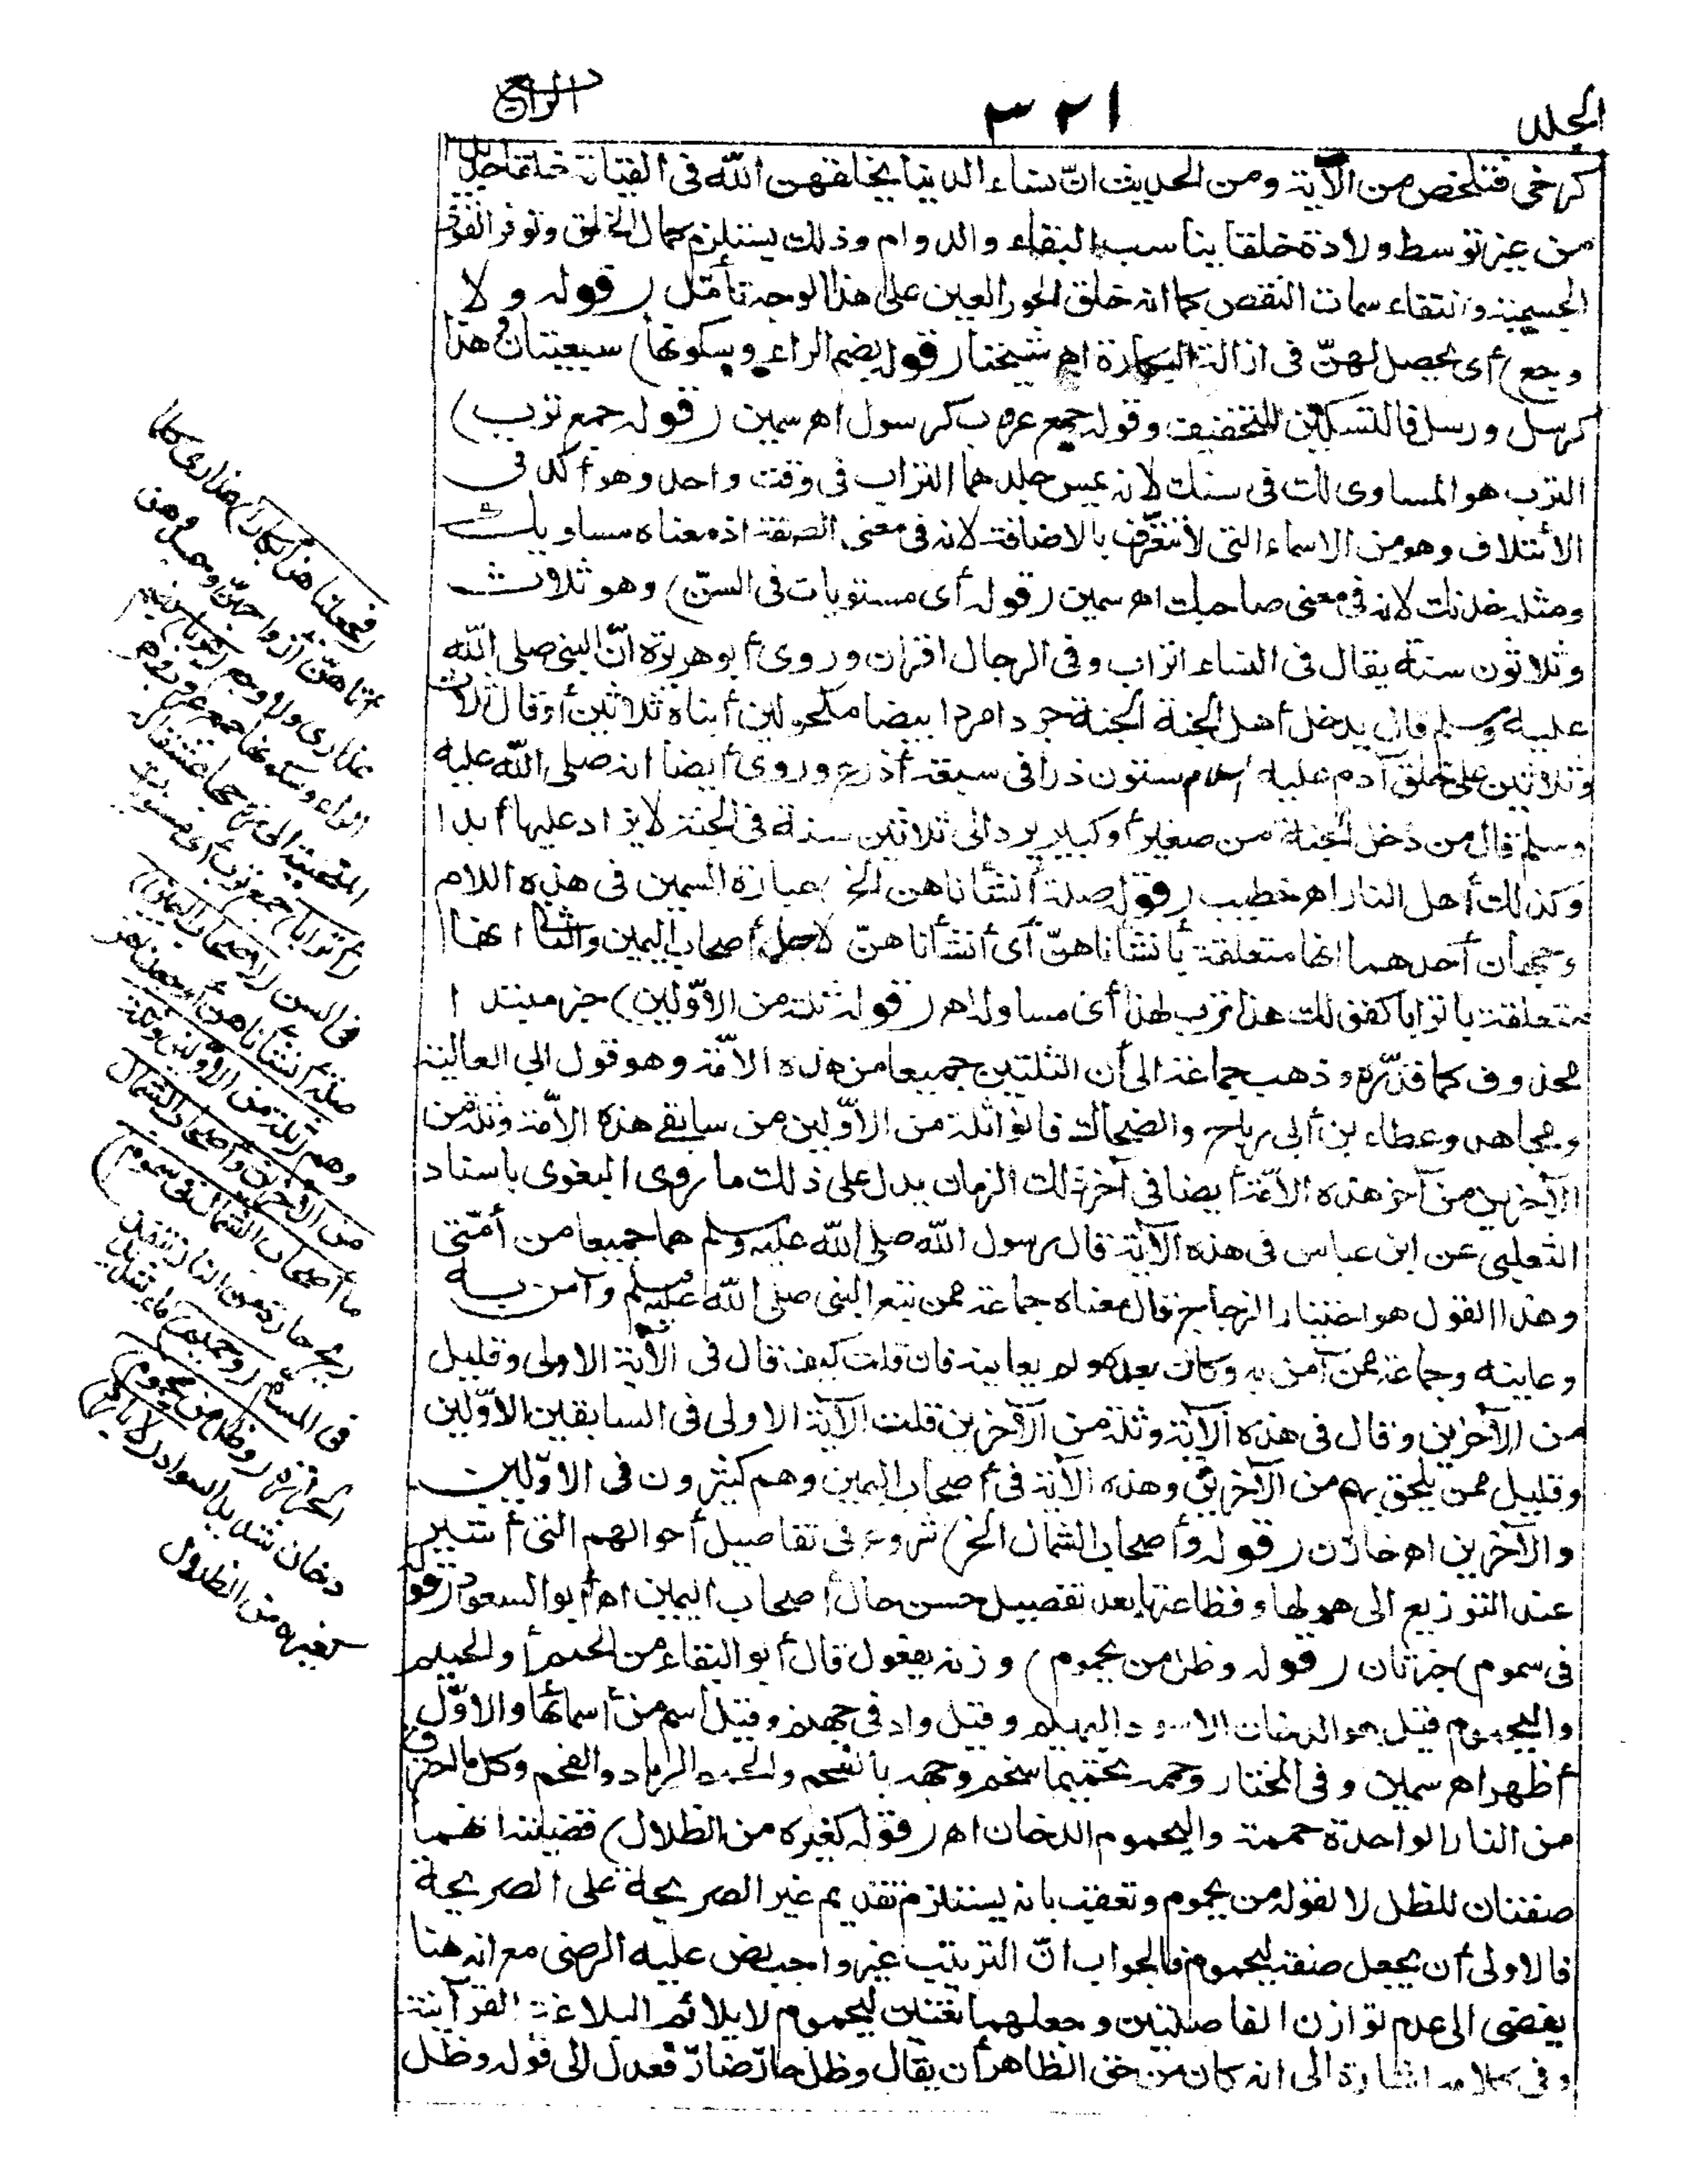 المجلد
٣٢١
الرابع
كرخى فتلخص من الآية ومن الحديث انّ نساء الدنيا يخلقهن الله فى القيامة خلقا جديدا
من غير توسط ولادة خلقا يناسب البقاء والدوام وذلك يستلزم كمال الخلق وتوفر القوى
الجسمية وانتفاء سمات النقص كما انه خلق الحور العين على هذا الوجه تأمّل (قوله ولا
وجع) أى يحصل لهنّ فى ازالة البكارة اهـ شيخنا (قوله بضم الراء وسكونها) سبعيتان وهذا
كرسل ورسل فالتسكين للتخفيف وقوله جمع عروب كرسول اهـ سمين (قوله جمع ترب)
الترب هو المساوى لك فى سنك لانه يمس جلدهما التراب فى وقت واحد وهو آكد فى
الائتلاف وهو من الاسماء التى لا تتعرّف بالاضافة لانه فى معنى الصفة اذ معناه مساويك
ومثله خدنك لانه فى معنى صاحبك اهـ سمين (قوله أى مستويات فى السنّ) وهو ثلاث
وثلاثون سنة يقال فى النساء اتراب وفى الرجال اقران وروى أبو هريرة انّ النبى صلى الله
عليه وسلم قال يدخل أهل الجنة الجنة جردا مردا بيضا مكحولين أبناء ثلاثين أو قال ثلاث
وثلاثين على خلق آدم عليه السلام ستون ذراعا فى سبعة أذرع وروى أيضا انه صلى الله عليه
وسلم قال من دخل الجنة من صغير أو كبير يرد الى ثلاثين سنة فى الجنة لا يزاد عليها أبدا
وكذلك أهل النار اهـ خطيب (قوله صلة أنشأناهن الخ) عبارة السمين فى هذه اللام
وجهان أحدهما انها متعلقة بأنشأناهنّ أى أنشأناهنّ لاجل أصحاب اليمين والثانى انها
متعلقة باترابا كقولك هذا ترب لهذا أى مساو له اهـ (قوله ثلة من الاوّلين) خبر مبتدا
محذوف كما قدّره وذهب جماعة الى أن الثلتين جميعا من هذه الامّة وهو قول ابى العالية
ومجاهد وعطاء بن أبى رباح والضحاك قالوا ثلة من الاوّلين من سابقى هذه الامّة وثلة من
الآخرين من آخر هذه الامّة أيضا فى آخر ذلك الزمان يدل على ذلك ما روى البغوى باسناد
الثعلبى عن ابن عباس فى هذه الآية قال رسول الله صلى الله عليه وسلم هما جميعا من أمّتى
وهذا القول هو اختيار الزجاج قال معناه جماعة ممن تبع النبى صلى الله عليه وسلم وآمن به
وعاينه وجماعة ممن آمن به وكان بعده ولم يعاينه فان قلت كيف قال فى الآية الاولى وقليل
من الآخرين وقال فى هذه الآية وثلة من الآخرين قلت الآية الاولى فى السابقين الاوّلين
وقليل ممن يلحق بهم من الآخرين وهذه الآية فى أصحاب اليمين وهم كثيرون فى الاوّلين
والآخرين اهـ خازن (قوله وأصحاب الشمال الخ) شروع فى تفاصيل أحوالهم التى أشير
عند التوزيع الى هولها وفظاعتها بعد تفصيل حسن حال أصحاب اليمين اهـ أبو السعود (قوله
فى سموم) خبر ثان (قوله وظل من يحموم) وزنه يفعول قال أبو البقاء من الحمم أو الحميم
واليحموم قيل هو الدخان الاسود البهيم وقيل واد فى جهنم وقيل اسم من أسمائها والاوّل
أظهر اهـ سمين وفى المختار وحممه تحميما سخم وجهه بالفحم والحمم الرماد والفحم وكل ما احترق
من النار الواحدة حممة واليحموم الدخان اهـ (قوله كغيره من الظلال) فضيلته انهما
صفتان للظل لا لقوله من يحموم وتعقب بانه يستلزم تقديم غير الصريحة على الصريحة
فالاولى أن يجعل صفة ليحموم فالجواب انّ الترتيب غير واجب نص عليه الرضى مع انه هنا
يفضى الى عدم توازن الفاصلتين وجعلهما نعتين ليحموم لا يلائم البلاغة القرآنية
وفى كلامه اشارة الى انه كان من حق الظاهر أن يقال وظل حارّ ضارّ فعدل الى قوله وظل
(فجعلناهنّ أبكارا) عذارى كلما
أتاهنّ أزواجهنّ وجدوهن
عذارى ولا وجع (عربا) بضم
الراء وسكونها جمع عروب وهى
المتحببة الى زوجها عشقا له
(أترابا) جمع ترب أى مستويات
فى السن (لاصحاب اليمين)
صلة أنشأناهن أو جعلناهن
وهم (ثلة من الاوّلين وثلة
من الآخرين وأصحاب الشمال
ما أصحاب الشمال فى سموم)
ريح حارة من النار تنفذ
فى المسامّ (وحميم) ماء شديد
الحرارة (وظل من يحموم)
دخان شديد السواد (لا بارد)
كغيره من الظلال